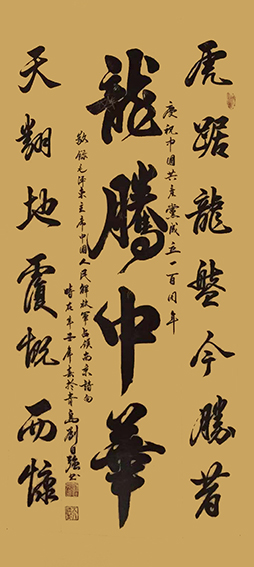 虎踞龍盤今勝昔
庆祝中國共產黨成立一百周年
龍騰中華
敬錄毛澤東主席中國人民解放軍占領南京詩句
春於青島劉日强書
天翻地覆慨而慷